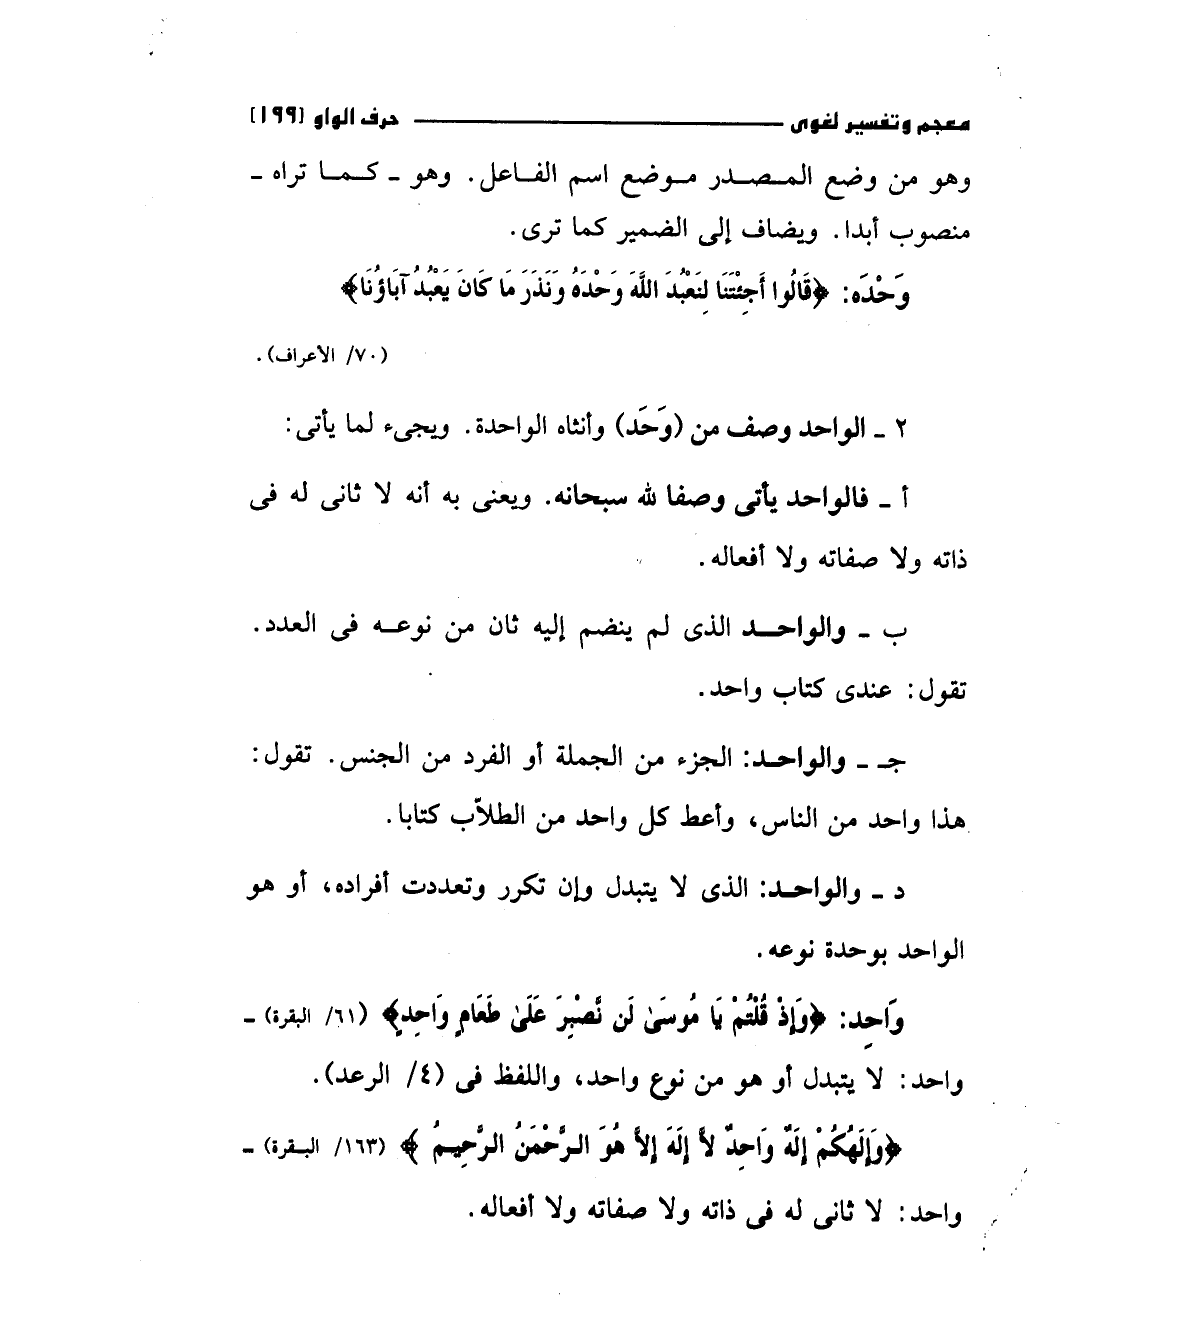 معجم وتفسير لغوى ــــــــــ حرف الواو [١٩٩]
وهو من وضع المصدر موضع اسم الفاعل. وهو ـ كما تراه ـ
منصوب أبدا. ويضاف إلى الضمير كما ترى.
وَحْدَه: ﴿قَالُوا أَجِئْتَنَا لِنَعْبُدَ اللَّهَ وَحْدَهُ وَنَذَرَ مَا كَانَ يَعْبُدُ آبَاؤُنَا﴾
(٧٠/ الأعراف).
٢ ـ الواحد وصف من (وَحَد) وأنثاه الواحدة. ويجىء لما يأتى:
أ ـ فالواحد يأتى وصفا لله سبحانه. ويعنى به أنه لا ثانى له فى
ذاته ولا صفاته ولا أفعاله.
ب ـ والواحد الذى لم ينضم إليه ثان من نوعه فى العدد.
تقول: عندى كتاب واحد.
جـ ـ والواحد: الجزء من الجملة أو الفرد من الجنس. تقول:
هذا واحد من الناس، وأعط كل واحد من الطلاّب كتابا.
د ـ والواحد: الذى لا يتبدل وإن تكرر وتعددت أفراده، أو هو
الواحد بوحدة نوعه.
وَاحِد: ﴿وَإِذْ قُلْتُمْ يَا مُوسَىٰ لَن نَّصْبِرَ عَلَىٰ طَعَامٍ وَاحِدٍ﴾ (٦١/ البقرة) ـ
واحد: لا يتبدل أو هو من نوع واحد، واللفظ فى (٤/ الرعد).
﴿وَإِلَهُكُمْ إِلَهٌ وَاحِدٌ لاَّ إِلَهَ إِلاَّ هُوَ الرَّحْمَنُ الرَّحِيمُ﴾ (١٦٣/ البقرة) ـ
واحد: لا ثانى له فى ذاته ولا صفاته ولا أفعاله.